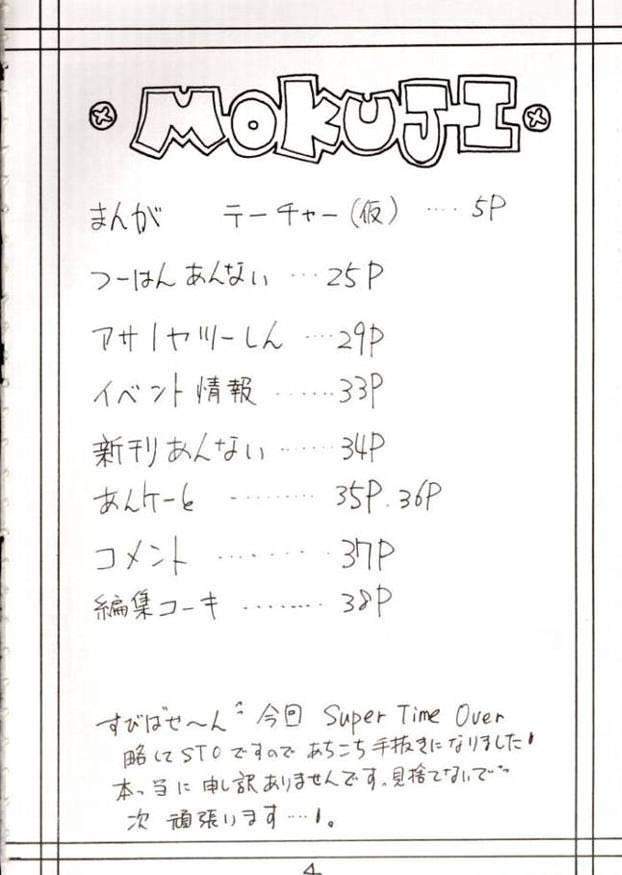 MOKUJI
まんが テーチャー(仮) ‥‥ 5P
つーはんあんない …25P
アサノヤツーしん …29P
イベント情報 ……33P
新刊あんない ……34P
あんケーと ………35P.36P
コメント ………37P
編集コーキ ………38P
すびばせ~ん 今回 Super Time Over
略してSTOですので あちこち手抜きになりました!
本っ当に申し訳ありませんです。見捨てないで
次 頑張います…!。
4